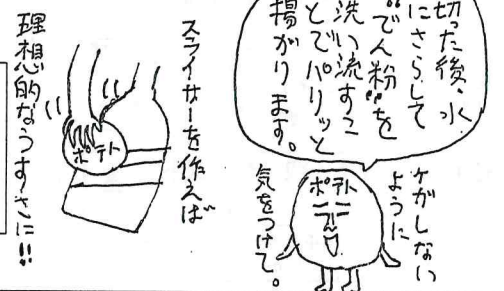 切った後、水
にさらして
"でん粉"を
洗い流すこ
とでパリッと
揚がります。
ポテト
ケがしない
ように
気をつけて。
スライサーを使えば
ポテト
理想的なうすさに!!